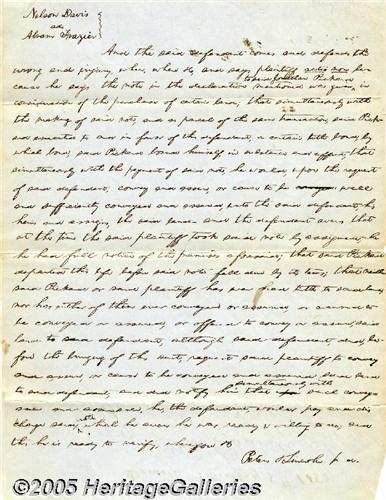 Nelson Davis
ads
Abram Frazier
And the said defendant comes and defends the
wrong and injury, when, where &c, and says plaintiff actio non be-
cause he says the note in the declaration mentioned was given, in
consideration of the purchase of certain land; that simultaneously with
the making of said note, and as parcel of the same transaction, said
executed to and in favor of the defendant, a certain title bond, by
which bond, said bound himself in substance and effect, that
simultaneously with the payment of said note, he would, upon the request
of said defendant, convey and assure, or cause to be well
and sufficiently conveyed and assured, unto the said defendant, his
heirs and assigns, the said land; and the defendant avers that
at the time the said plaintiff took said note by assignment, he
had full notice of the premises aforesaid; that said
departed this life before said note fell due by its terms; that neither
said or said plaintiff has ever had title to said land
nor has either of them ever conveyed or assured, or caused to
be conveyed or assured, or offered to convey or assure, said
land to said defendant, although said defendant did, be-
fore the bringing of this suit, request said plaintiff to convey
and assure, or cause to be conveyed and assured, said land
to said defendant, and did notify him that simultaneously with such convey-
ance and assurance he, the defendant, would pay and dis-
charge said note, which he ever has was ready & willing to do, and
this he is ready to verify, wherefore &c
Peters & Lincoln p. d.
©2005 HeritageGalleries